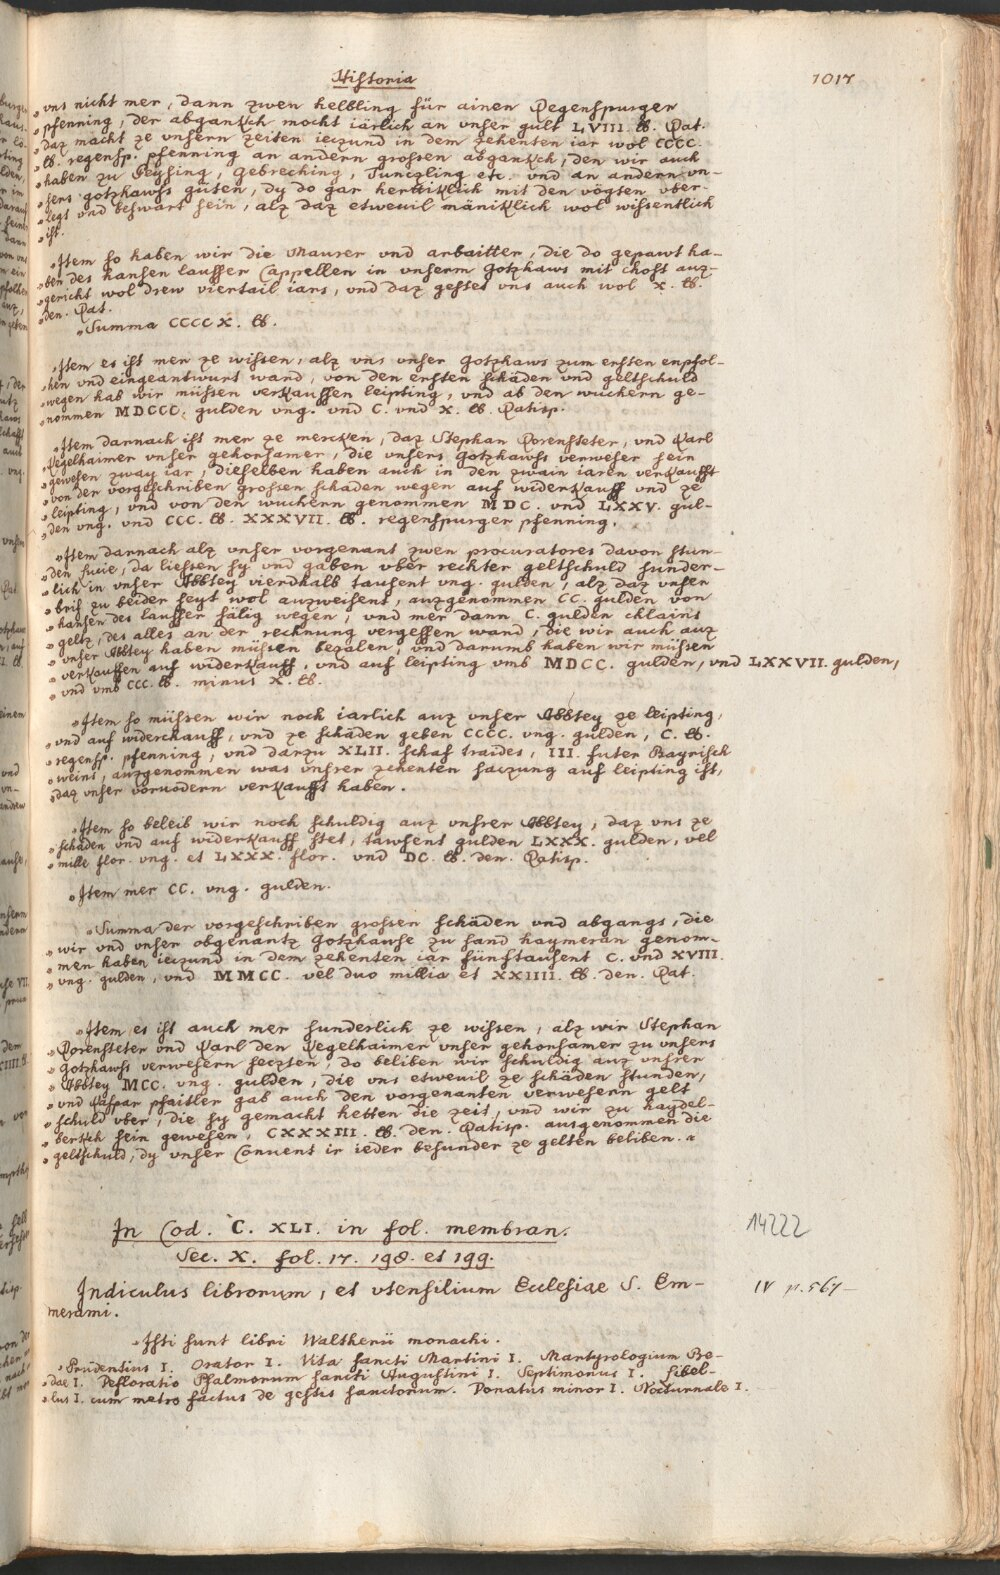 Historia
1017
„ vns nicht mer, dann zwen helbling für ainen Regenspurger
„ pfenning, der abganckh mocht iärlich an vnser gült LVIII. lb. Rat.
„ daz macht ze vnsern zeiten ieczund in dem zehenten iar wol CCCC.
„ lb. regensp. pfenning an andern grossen abganckh, den wir auch
„ haben zu Geysing, Gebreching, Tunczling etc. vnd an andern vn-
„ sers gotzhawss güten, dy do gar herttiklich mit den vögten vber-
„ legt vnd beswart sein, alz daz etweuil mäniklich wol wissentlich
„ ist.
„ Item so haben wir die Maurer vnd arbaitter, die do gepawt ha-
„ ben des hansen lausser Cappellen in vnserm gotzhaws mit chost auz-
„ gericht wol drew viertail iars, vnd daz gestet vns auch wol X. lb.
„ den. Rat.
„ Summa CCCCX. lb.
„ Item es ist mer ze wissen, alz vns vnser Gotzhaws zum ersten enpfol-
„ hen vnd eingeantwurt ward, von den ersten schäden vnd geltschuld
„ wegen hab wir müssen verkauffen leipting, vnd ab den wuchern ge-
„ nommen MDCCC. gulden vng. vnd C. vnd X. lb. Ratisp.
„ Item darnach ist mer ze mercken, daz Stephan Rorensteter, vnd Karl
„ Kegelhaimer vnser gehorsamer, die vnsers gotzhawss verweser sein
„ gewesen zway iar, dieselben haben auch in den zwain iaren verkaufft
„ von der vorgeschriben grossen schaden wegen auf widerkauff vnd ze
„ leipting, vnd von den wuchern genommen MDC. vnd LXXV. gul-
„ den vng. vnd CCC. lb. XXXVII. lb. regenspurger pfenning.
„ Item darnach alz vnser vorgenant zwen procuratores davon stun-
„ den huie, da liessen sy vnd gaben vber rechter geltschuld sunder-
„ lich in vnser Abbtey vierdhalb tausent vng. gulden, alz daz vnser
„ brif zu beider seyt wol auzweisent, auzgenommen CC. gulden von
„ hansen des lausser sälig wegen, vnd mer dann C. gulden chlains
„ geltz, des alles an der rechnung vergessen ward, die wir auch auz
„ vnser Abbtey haben müssen bezalen, vnd darumb haben wir müssen
„ verkauffen auf widerkauff, vnd auf leipting vmb MDCC. gulden, vnd LXXVII. gulden,
„ vnd vmb CCC. lb. minus X. lb.
„ Item so müssen wir noch iarlich auz vnser Abbtey ze leipting,
„ vnd auf widerchauff, vnd ze schäden geben CCCC. vng. gulden, C. lb.
„ regensp. pfenning, vnd darzu XLII. schaf traides, III. futer Bayrisch
„ weins, auzgenommen was vnsrer zehenten saczung auf leipting ist,
„ daz vnser vorvodern verkaufft haben.
„ Item so beleib wir noch schuldig auz vnsrer Abbtey, daz vns ze
„ schäden vnd auf widerkauff stet, tawsent gulden LXXX. gulden, vel
„ mille flor. vng. et LXXX. flor. vnd DC. lb. den. Ratisp.
„ Item mer CC. vng. gulden.
„ Summa der vorgeschriben grossen schäden vnd abgangs, die
„ wir vnd vnser obgenantz Gotzhawse zu sand haymeran genom-
„ men haben ieczund in dem zehenten iar fünftausent C. vnd XVIII.
„ vng. gulden, vnd MMCC. vel duo millia et XXIIII. lb. den. Rat.
„ Item es ist auch mer sunderlich ze wissen, alz wir Stephan
„ Rorensteter vnd Karl den Kegelhaimer vnser gehorsamer zu vnsers
„ Gotzhawss verwesern seczten, do beliben wir schuldig auz vnsrer
„ Abbtey MCC. vng. gulden, die vns etweuil ze schäden stunden,
„ vnd Kaspar pfaitler gab auch den vorgenanten verwesern gelt
„ schuld vber, die sy gemacht hetten die zeit, vnd wir zu haydel-
„ berkh sein gewesen, CXXXIII. lb. den. Ratisp. ausgenommen die
„ geltschuld, dy vnser Convent ir ieder besunder ze gelten beliben. “
In Cod. C. XLI. in fol. membran.
14222
Sec. X. fol. 17. 198. et 199.
Indiculus librorum, et vtensilium Ecclesiae S. Em-
IV p. 567
merami.
„ Isti sunt libri Waltherii monachi.
„ Prudentius I. Orator I. Vita sancti Martini I. Martyrologium Be-
„ dae I. Defloratio Psalmorum sancti Augustini I. Septimonius I. Libel-
„ lus I. cum metro factus de gestis sanctorum. Donatus minor I. Nocturnale I.